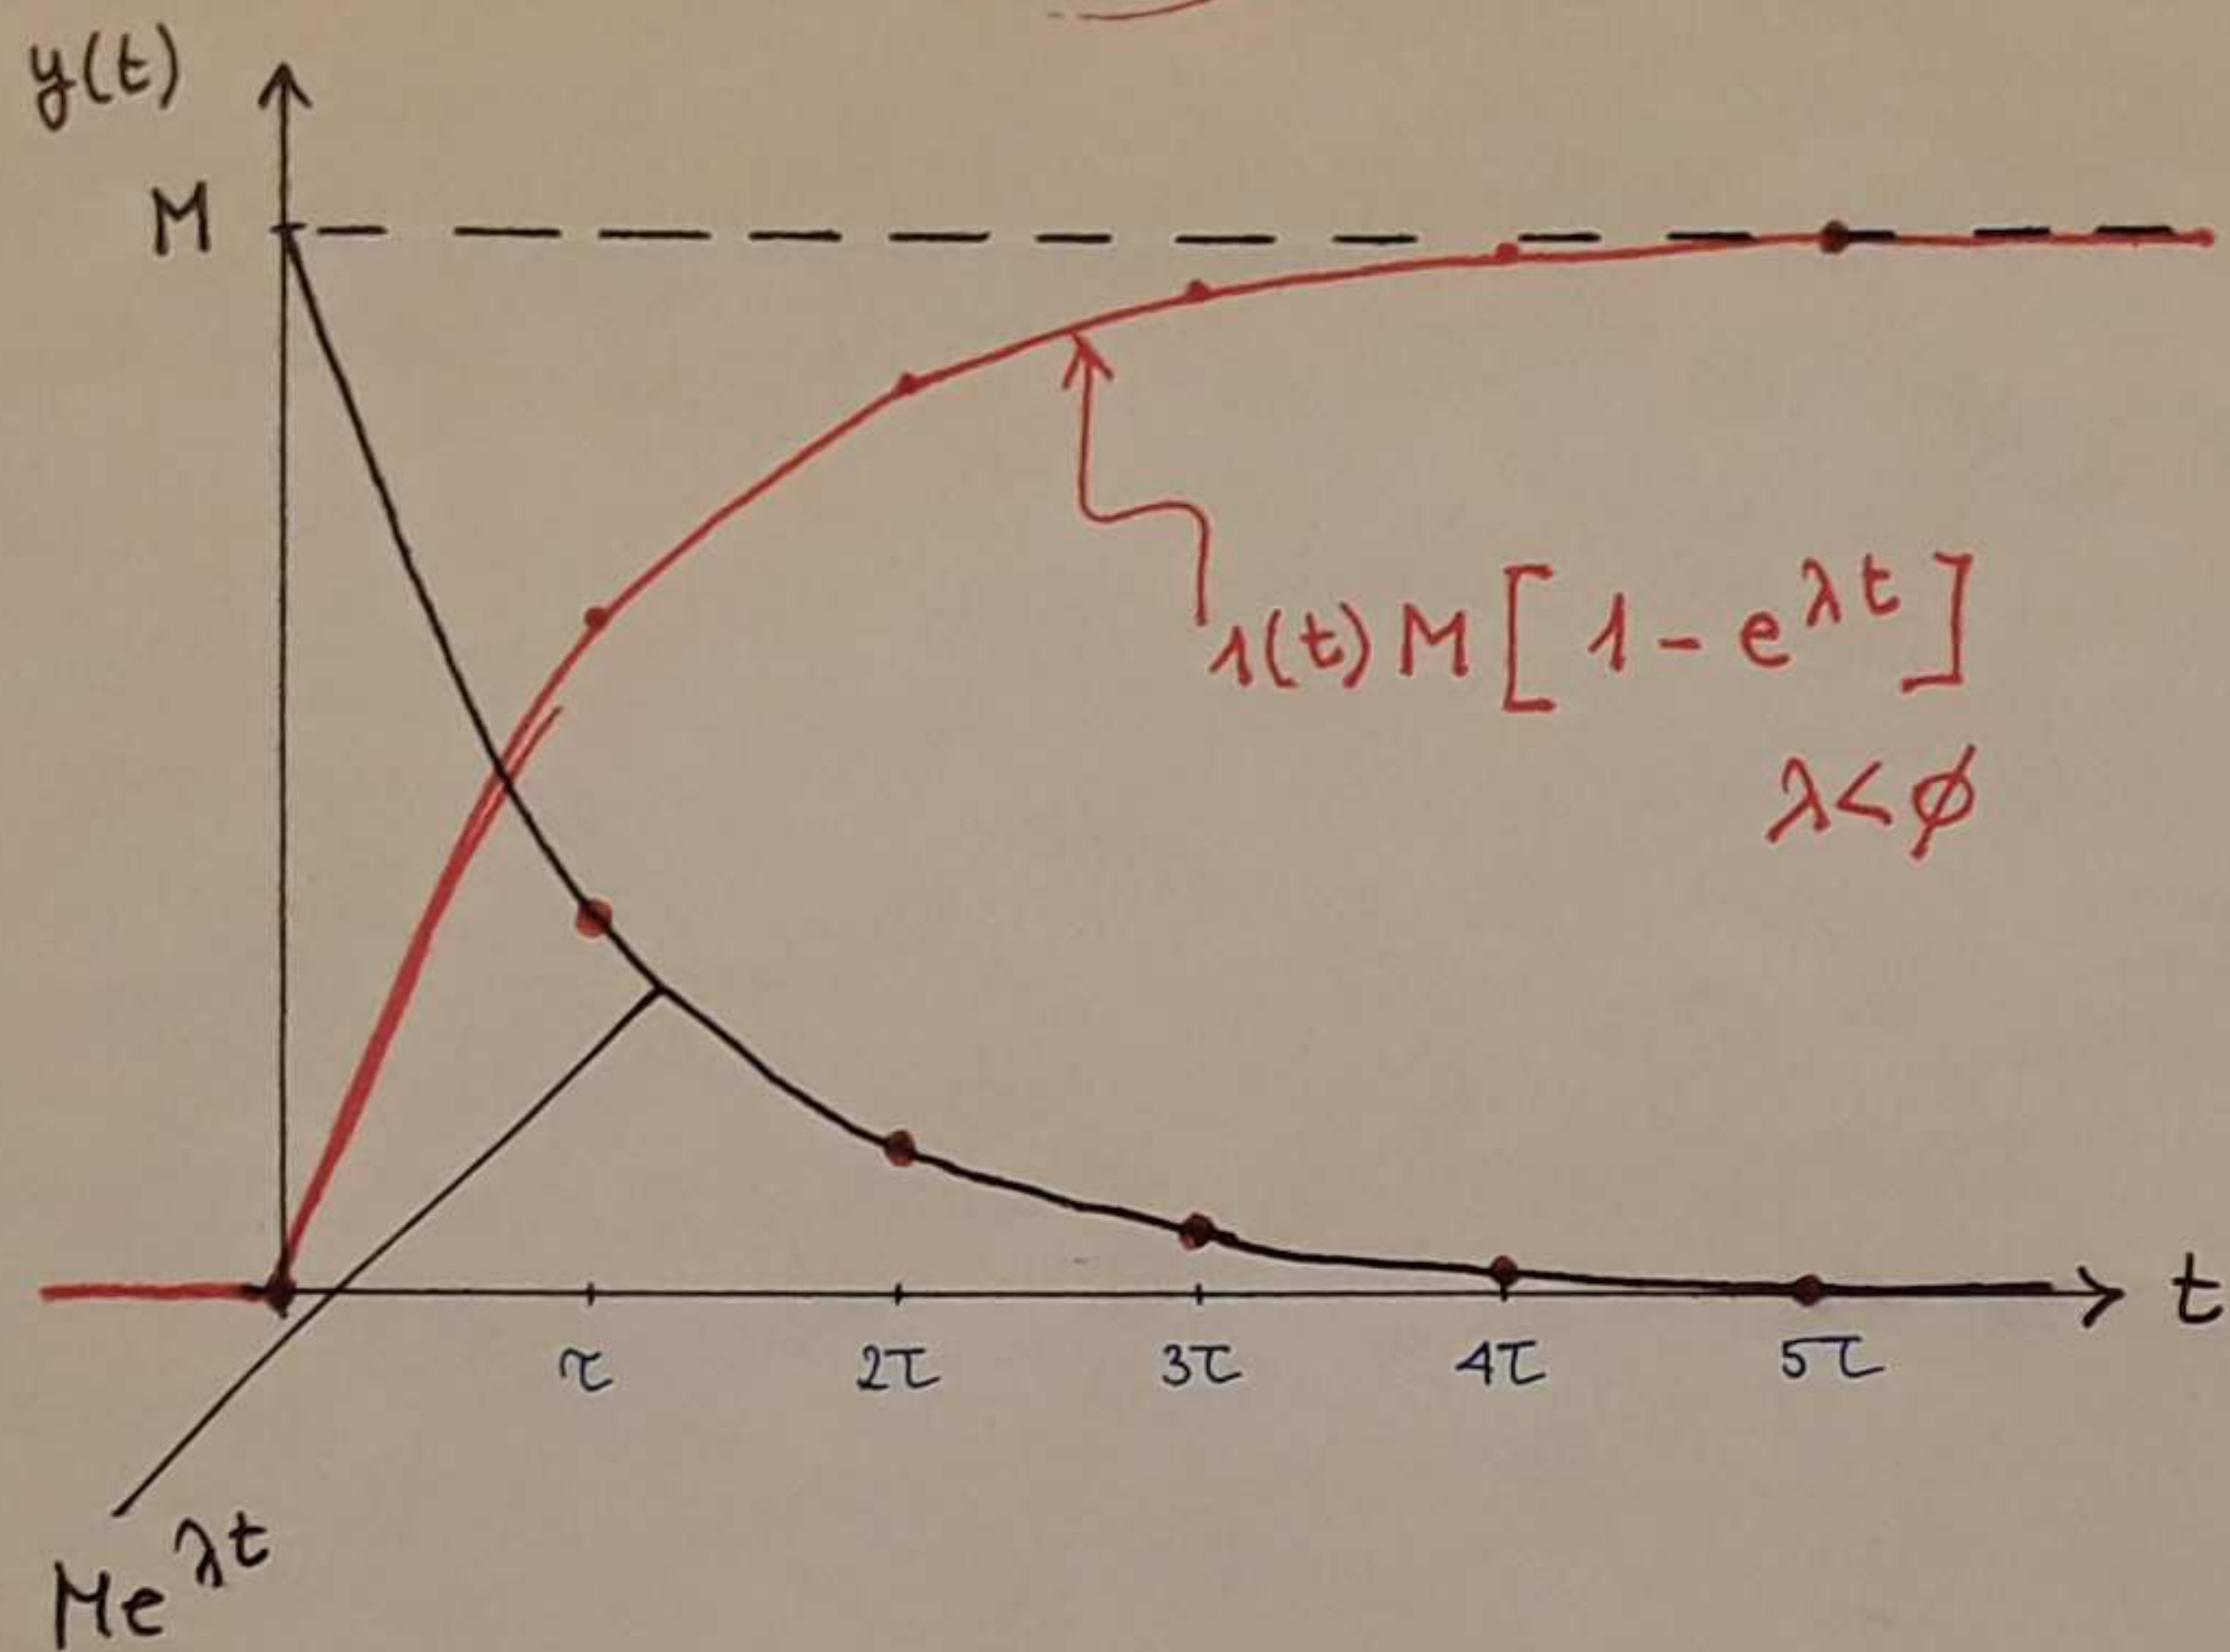 y(t)
M
1(t) M [ 1 - e^λt ]
λ < ϕ
t
τ 2τ 3τ 4τ 5τ
Me^λt